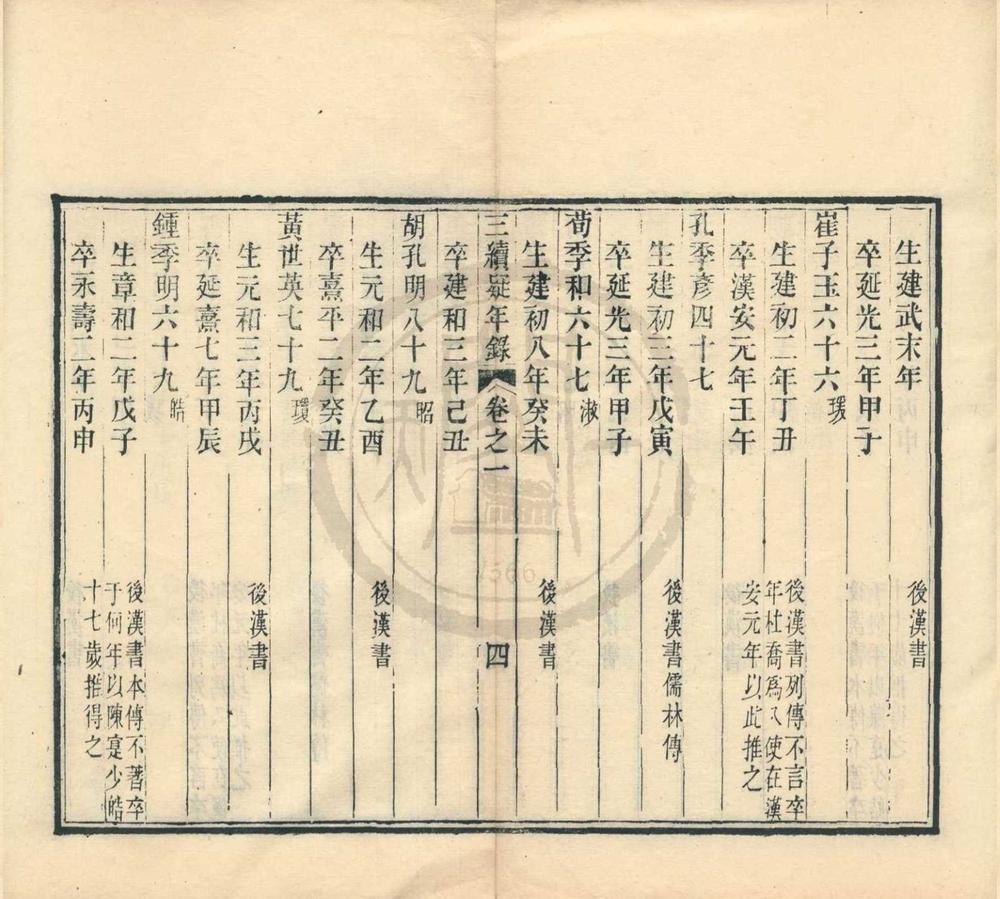 生建武末年
後漢書
卒延光三年甲子
崔子玉六十六瑗
生建初二年丁丑
後漢書列傳不言卒
年杜喬爲八使在漢
安元年以此推之
卒漢安元年壬午
孔季彥四十七
生建初三年戊寅
後漢書儒林傳
卒延光三年甲子
荀季和六十七淑
生建初八年癸未
後漢書
卒建和三年己丑
三續疑年錄
卷之一
四
胡孔明八十九昭
生元和二年乙酉
後漢書
卒熹平二年癸丑
黃世英七十九瓊
生元和三年丙戌
後漢書
卒延熹七年甲辰
鍾季明六十九皓
生章和二年戊子
後漢書本傳不著卒
于何年以陳寔少皓
十七歲推得之
卒永壽二年丙申
1566